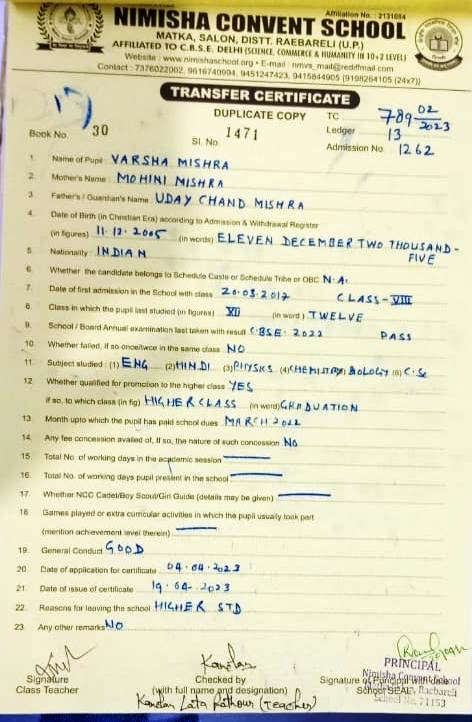 Affiliation No. : 2131684
NIMISHA CONVENT SCHOOL
MATKA, SALON, DISTT. RAEBARELI (U.P.)
AFFILIATED TO C.B.S.E. DELHI (SCIENCE, COMMERCE & HUMANITY IN 10+2 LEVEL)
Website : www.nimishaschool.org • E-mail : nmvs_mail@rediffmail.com
Contact : 7376022002, 9616740994, 9451247423, 9415844905 [9198264105 (24x7)]
TRANSFER CERTIFICATE
DUPLICATE COPY TC 789 02/2023
Book No. 30 Sl. No. 1471 Ledger 13
Admission No. 1262
1. Name of Pupil : VARSHA MISHRA
2. Mother's Name : MOHINI MISHRA
3. Father's / Guardian's Name : UDAY CHAND MISHRA
4. Date of Birth (in Christian Era) according to Admission & Withdrawal Register
(in figures) 11.12.2005 (in words) ELEVEN DECEMBER TWO THOUSAND-
FIVE
5. Nationality : INDIAN
6. Whether the candidate belongs to Schedule Caste or Schedule Tribe or OBC N.A.
7. Date of first admission in the School with class 20.03.2017 CLASS-VIII
8. Class in which the pupil last studied (in figures) XII (in word) TWELVE
9. School / Board Annual examination last taken with result CBSE-2022 PASS
10. Whether failed, if so once/twice in the same class NO
11. Subject studied : (1) ENG (2) HINDI (3) PHYSICS (4) CHEMISTRY BIOLOGY (6) C.Sc
12. Whether qualified for promotion to the higher class YES
if so, to which class (in fig) HIGHER CLASS (in word) GRADUATION
13. Month upto which the pupil has paid school dues MARCH 2022
14. Any fee concession availed of, If so, the nature of such concession NO
15. Total No. of working days in the academic session
16. Total No. of working days pupil present in the school
17. Whether NCC Cadet/Boy Scout/Girl Guide (details may be given)
18. Games played or extra curricular activities in which the pupil usually took part
(mention achievement level therein)
19. General Conduct GOOD
20. Date of application for certificate 04.04.2023
21. Date of issue of certificate 19.04.2023
22. Reasons for leaving the school HIGHER STD
23. Any other remarks NO
PRINCIPAL
Nimisha Convent School
Raebareli
School No. 71153
Signature
Class Teacher
Checked by
(with full name and designation)
Kandan Lata Rathour (Teacher)
Signature of Principal with date
School SEAL